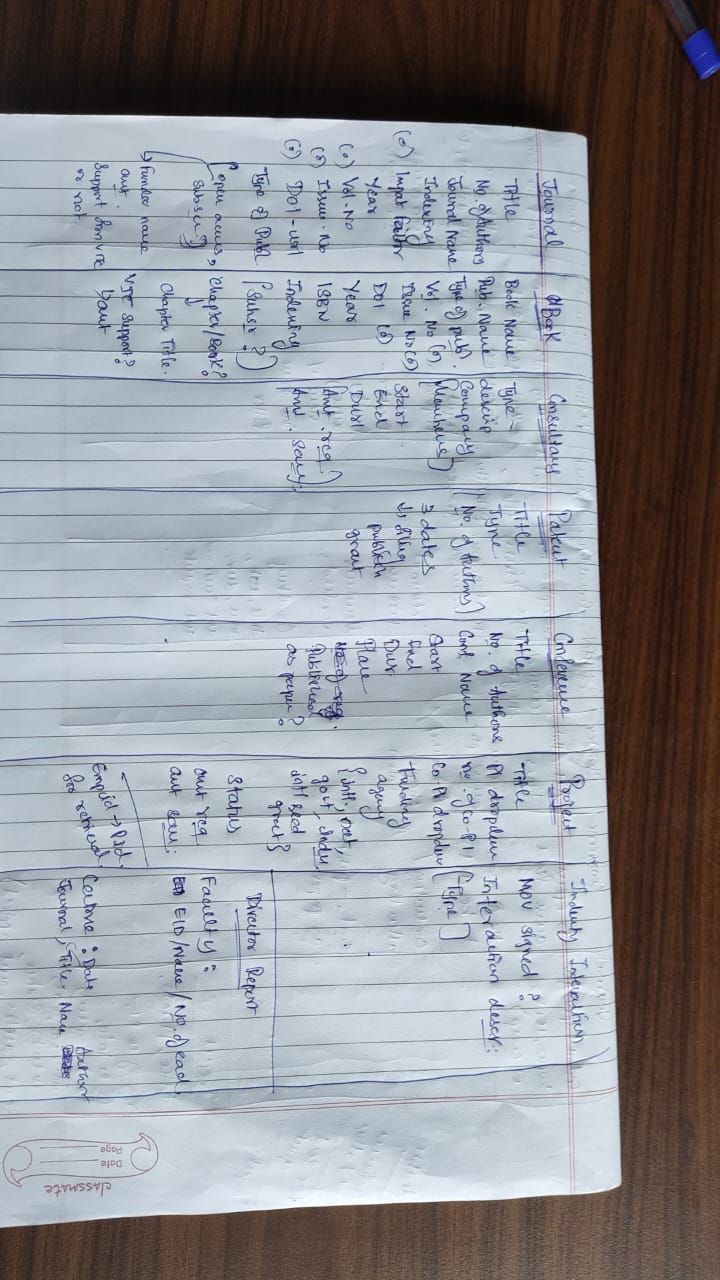 Journal
Title
No. of Authors
Journal Name
Indexing
(o) Impat factor
Year
(o) Vol. No
(o) Issue. No
(o) DOI - url
Type of Publ.
[open access,
subscr ?]
Funder name
amt.
Support from VTE
or not.
Book
Book Name
Pub. Name
Type of publ.
Vol. No (o)
Issue No (o)
DOI (o)
Year
ISBN
Indexing
[Subscr ?]
Chapter/Book?
Chapter Title.
support?
amt
Consultancy
Type -
descrip
Company
[Members]
Start
End
[Amt. req
Amt.
Patent
Title
Type
(No. of Authors)
3 dates
↳ filing
grant
Conference
Title
No. of Authors
Conf. Name
Start
End
Dur
Place
Published
as paper?
Project
Title
PI dropdown
no. of Co-PI
Co-PI dropdown
Funding
agency
{intl., nat,
govt, indu
intl seed
grant}
Status
amt req
amt
Empid →
for retrieval
Industry Interaction
MOU signed ?
Interaction descr:
[Type]
Director Report
Faculty:
EID/Name/No. of each
: Date
Journal, Title, Name Author
classmate
Date
Page